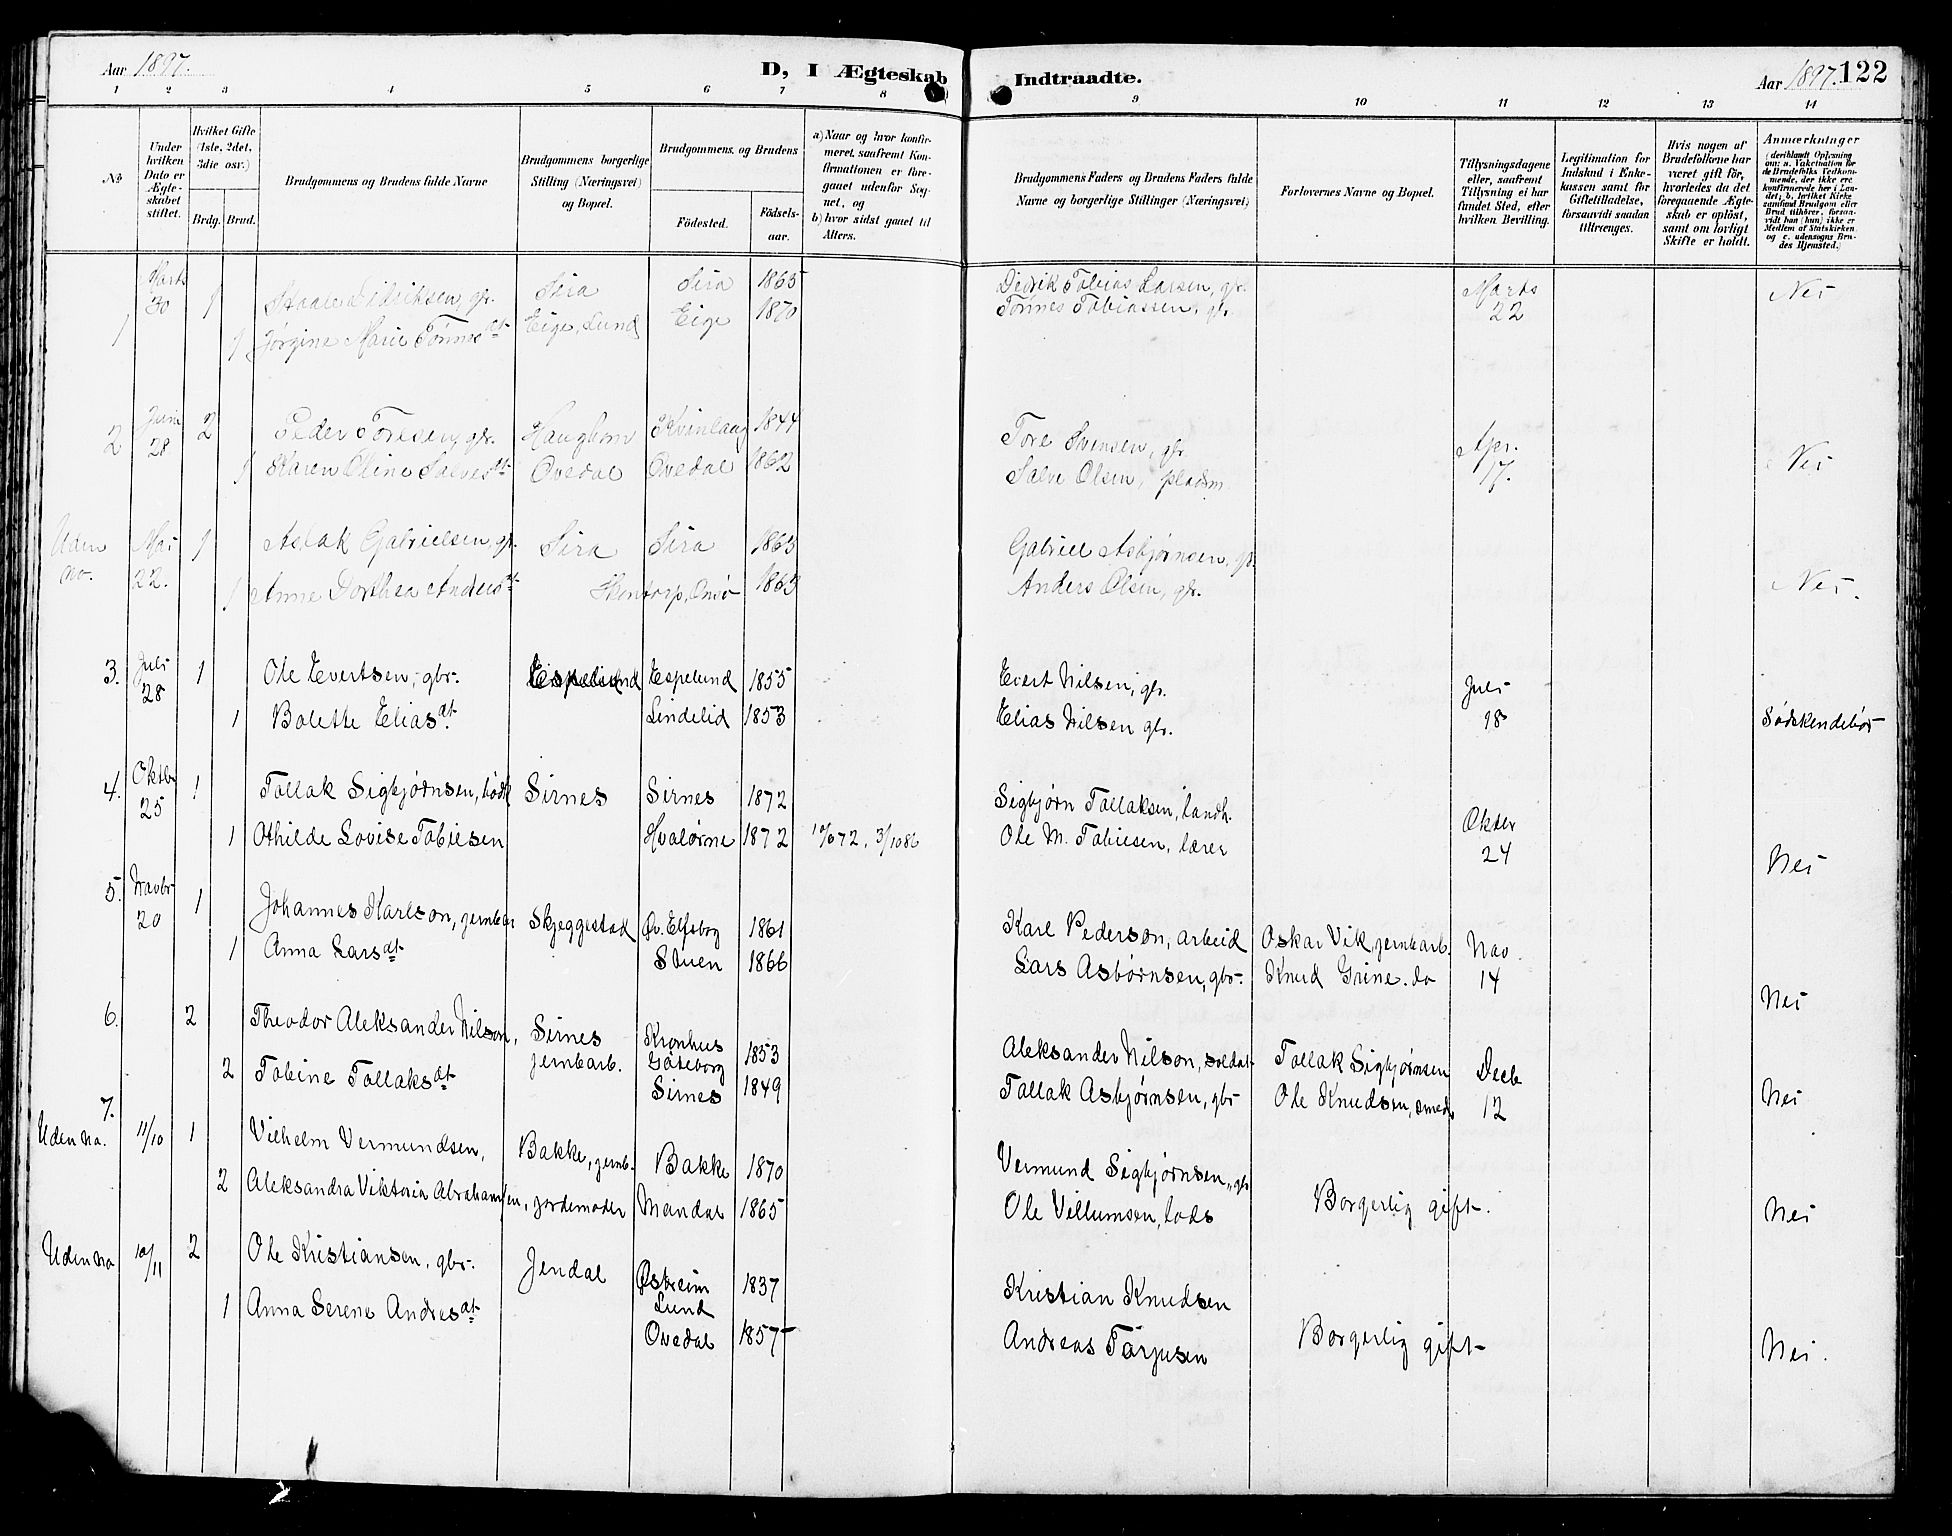 Aar 1897.
D, I Ægteskab Indtraadte.
Aar 1897.
122
1 2 3 4 5 6 7 8 9 10 11 12 13 14
No
Under hvilken Dato er Ægteskabet stiftet.
Hvilket Gifte (1ste, 2det, 3die osv.)
Brdg. Brud.
Brudgommens og Brudens fulde Navne
Brudgommens borgerlige Stilling (Næringsvei) og Bopæl.
Brudgommens og Brudens
Fødested.
Fødselsaar.
a) Naar og hvor konfirmeret, saafremt Konfirmationen er foregaaet udenfor Sognet, og
b) hvor sidst gaaet til Alters.
Brudgommens Faders og Brudens Faders fulde Navne og borgerlige Stillinger (Næringsvei)
Forlovernes Navne og Bopæl.
Tillysningsdagene eller, saafremt Tillysning ei har fundet Sted, efter hvilken Bevilling.
Legitimation for Indskud i Enkekassen samt for Giftetilladelse, forsaavidt saadan tiltrænges.
Hvis nogen af Brudefolkene har været gift før, hvorledes da det foregaaende Ægteskab er opløst, samt om lovligt Skifte er holdt.
Anmærkninger
(deriblandt Oplysning om: a. Vakcination for de Brudefolks Vedkommende, der ikke ere konfirmerede her i Landet; b. hvilket Kirkesamfund Brudgom eller Brud tilhører, forsaavidt han (hun) ikke er Medlem af Statskirken, og c. udensogns Brudes Hjemsted.)
1 Marts 30 1 Staale Didriksen, gbr. Sira Sira 1865 Didrik Tobias Larsen, gbr. Marts 22 Nei
1 Jørgine Marie Tønnesdt. Eige, Lund Eige 1870 Tønnes Tobiassen, gbr.
2 Juni 28 2 Peder Toresen, gbr. Haughom Kvinlaug 1844 Tore Svensen, gbr. Apr. 17. Nei
1 Karen Oline Salvesdt. Ovedal Ovedal 1862 Salve Olsen, pladsm.
Uden no. Mai 22. 1 Aslak Gabrielsen, gbr. Sira Sira 1865 Gabriel Asbjørnsen, gbr.
1 Anne Dorthea Andersdt. 1863 Anders Olsen, gbr. Nei.
3. Juli 28 1 Ole Evertsen, gbr. Espelund Espelund 1855 Evert Nilsen, gbr. Juli 18
1 Bolette Eliasdt. Lindelid 1853 Elias Nilsen gbr. Sødskendebør
4. Oktbr 25 1 Tallak Sigbjørnsen, Sirnes Sirnes 1872 Sigbjørn Tallaksen, landh. Okter 24
1 Othilde Lovise Tobiesen Hvalørne 1872 3/1086 Ole M. Tobiesen, lærer Nei
5. Novbr 20 1 Johannes Karlson, jernbar Skjeggestad Øv. Elfsborg 1861 Karl Pederson, arbeid Oskar Vik, jernbarb. Nov. 14
1 Anna Larsdt. Stuen 1866 Lars Asbørnsen, gbr. Knud Grine. do Nei
6. 2 Theodor Aleksander Nilson, Sirnes jernbarb. Kronhus Göteborg 1853 Aleksander Nilson, soldat Tallak Sigbjørnsen Decb 12
2 Tobine Tallaksdt. Sirnes 1849 Tallak Asbjørnsen, gbr Ole Knudsen, smed Nei
7. Uden No. 11/10 1 Vilhelm Vermundsen, Bakke, jernb. Bakke 1870 Vermund Sigbjørnsen, gbr
2 Aleksandra Viktoria Abrahamsen, jordemoder Mandal 1865 Ole Villumsen, lods Borgerlig gift. Nei
Uden No 10/11 2 Ole Kristiansen, gbr. Jendal Østreim Lund 1837 Kristian Knudsen
1 Anna Serene Andreasdt. Ovedal 1857 Andreas Tarjusen Borgerlig gift Nei.